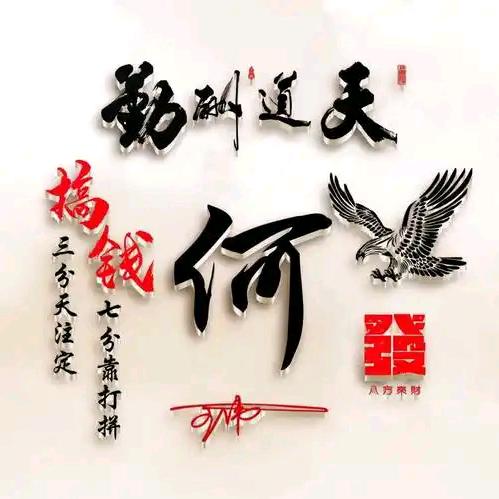 天道酬勤
搞钱
三分天注定
七分靠打拼
何
發
八方來財